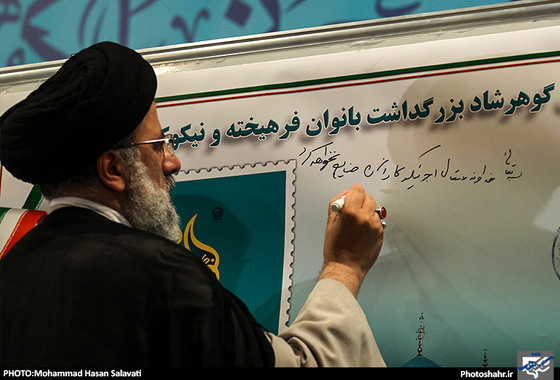 گوهرشاد بزرگداشت بانوان فرهیخته و نیکوک
خداوند متعال اجر نیکوکاران ضایع نخواهد کرد
PHOTO:Mohammad Hasan Salavati
Photoshahr.ir